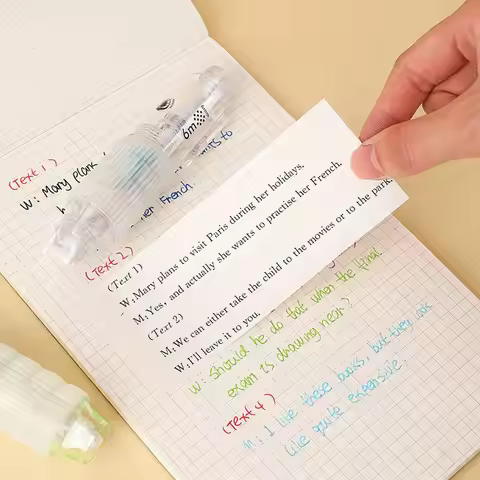 (Text 1)
W: Mary plans
her French.
6m
(Text 2)
(Text 1)
W, Mary plans to visit Paris during her holidays.
M, Yes, and actually she wants to practise her French.
(Text 2)
M, We can either take the child to the movies or to the park.
W, I'll leave it to you.
W: Should he do that when the final
exam is drawing near?
(Text 4)
M: I like these books, but they look
like quite expensive.